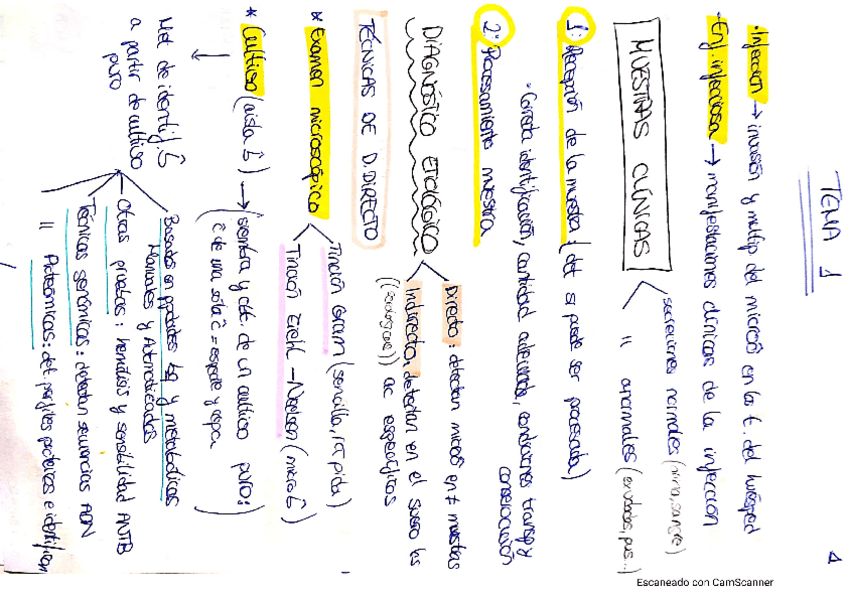 TEMA 1
1
·Infección → invasión y multip del microo en los t. del huésped
·Enf. infecciosa → manifestaciones clínicas de la infección
MUESTRAS CLÍNICAS
secreciones normales (orina, sangre)
" anormales (exudados, pus...)
1: Recepción de la muestra (det si puede ser procesada)
· Correcta identificación, cantidad adecuada, condiciones transp y conservación
2: Procesamiento muestra
DIAGNÓSTICO ETIOLÓGICO
Directo: detectan microo en ≠ muestras
Indirecto: detectan en el suero los
((serológicas)) ac específicos
TÉCNICAS DE D. DIRECTO
* Examen microscópico
Tinción Gram (sencilla, rápida)
Tinción Ziehl-Neelsen (micob)
* Cultivo (aisla b) → (siembra y obt. de un cultivo puro:
c de una sola c = especie y cepa)
Met de identif. b
a partir de cultivo
puro
Basados en ppdades bq y metabólicas
Manuales y Automatizados
Otras pruebas: hemólisis y sensibilidad ANTB
Técnicas genómicas: detectan secuencias ADN
" Proteómicas: det. perfiles proteicos e identifican
Escaneado con CamScanner